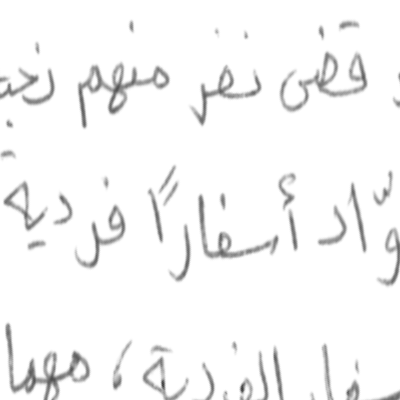 قضى نفر منهم نحبه
وّاد أسفارًا فردية
سفار الفردية، مهما